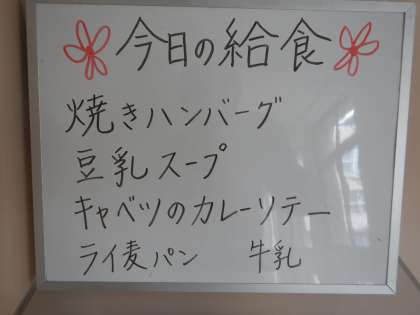 今日の給食
焼きハンバーグ
豆乳スープ
キャベツのカレーソテー
ライ麦パン 牛乳